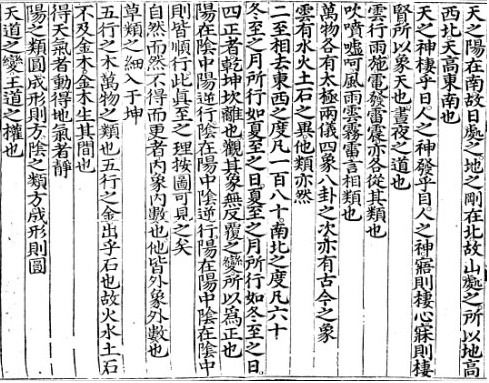 天之陽在南故日處之地之剛在北故山處之所以地高
西北天高東南也
天之神棲乎日人之神發乎目人之神寤則棲心寐則棲
腎所以象天也晝夜之道也
雲行雨施電發雷震亦各從其類也
吹噴噓呵風雨雲霧雷言相類也
萬物各有太極兩儀四象八卦之次亦有古今之象
雲有水火土石之異他類亦然
二至相去東西之度凡一百八十南北之度凡六十
冬至之月所行如夏至之日夏至之月所行如冬至之日
四正者乾坤坎離也觀其象無反覆之變所以為正也
陽在陰中陽逆行陰在陽中陰逆行陽在陽中陰在陰中
則皆順行此真至之理按圖可見之矣
自然而然不得而更者內象內數也他皆外象外數也
草類之細入于坤
五行之木萬物之類也五行之金出乎石也故火水土石
不及金木金木生其間也
得天氣者動得地氣者靜
陽之類圓成形則方陰之類方成形則圓
天道之變王道之權也